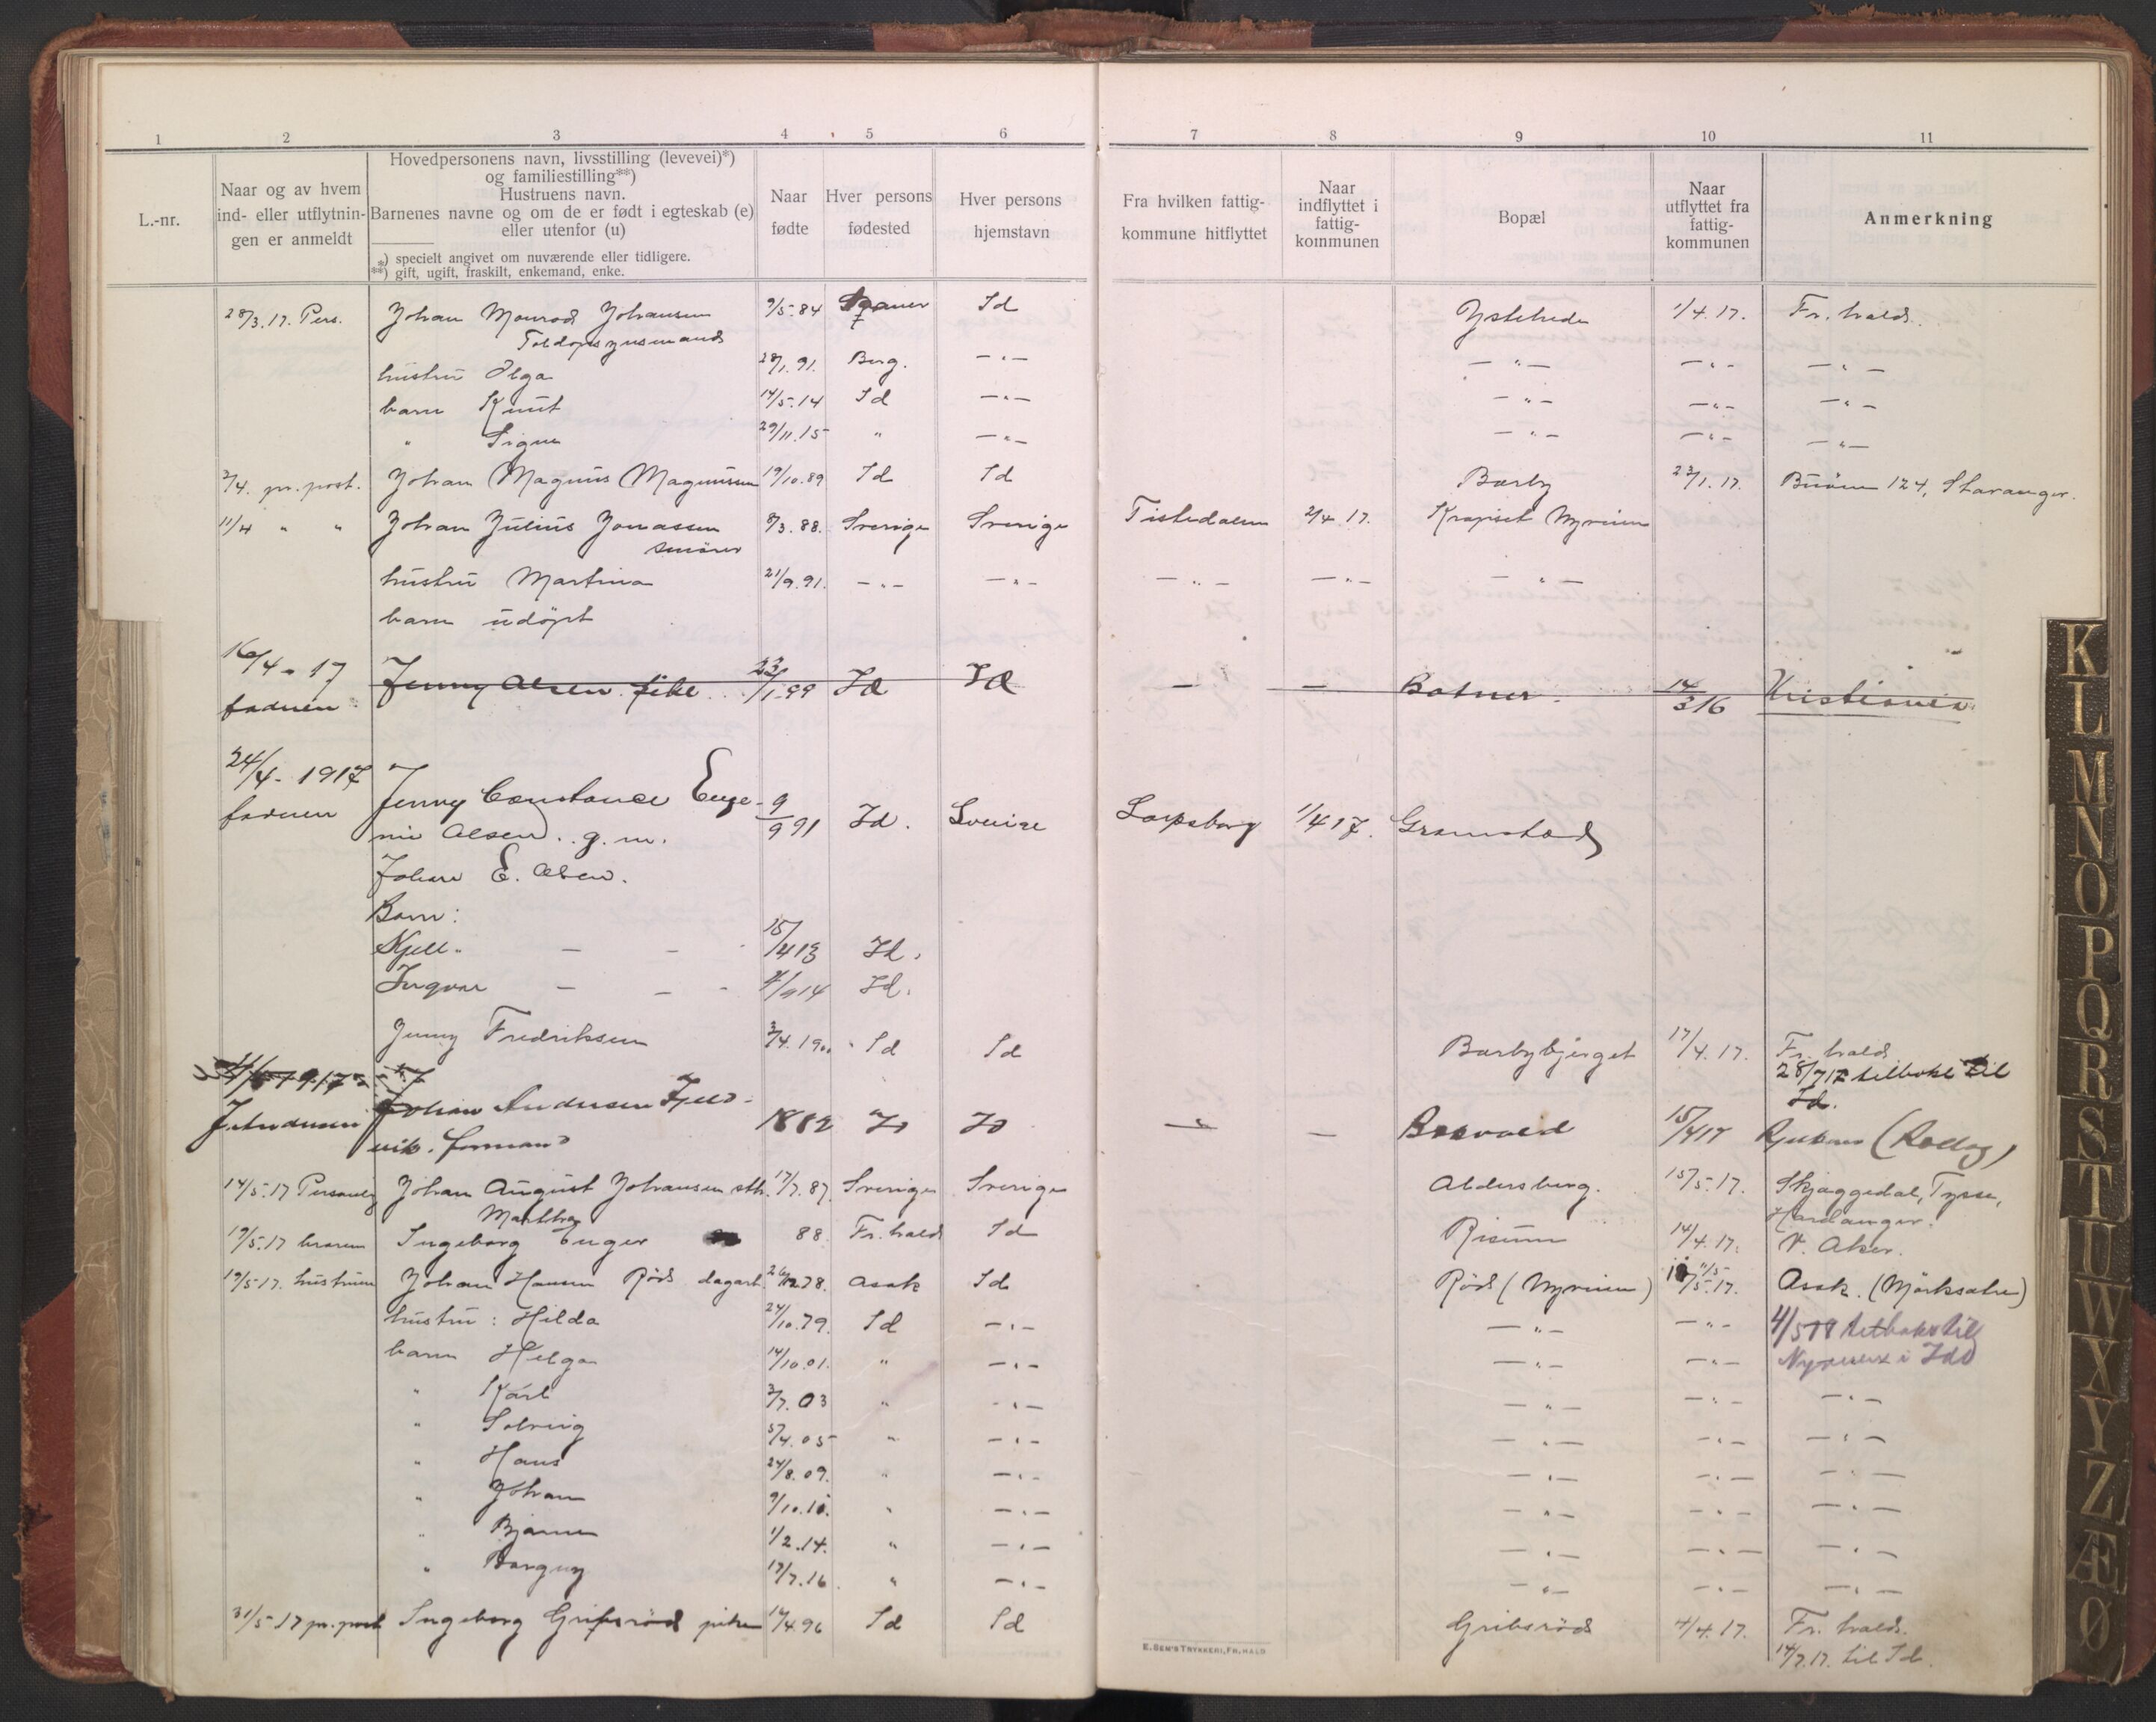 1 2 3 4 5 6 7 8 9 10 11
L.-nr.
Naar og av hvem
ind- eller utflytnin-
gen er anmeldt
Hovedpersonens navn, livsstilling (levevei)*)
og familiestilling**)
Hustruens navn.
Barnenes navne og om de er født i egteskab (e)
eller utenfor (u)
*) specielt angivet om nuværende eller tidligere.
**) gift, ugift, fraskilt, enkemand, enke.
Naar
fødte
Hver persons
fødested
Hver persons
hjemstavn
Fra hvilken fattig-
kommune hitflyttet
Naar
indflyttet i
fattig-
kommunen
Bopæl
Naar
utflyttet fra
fattig-
kommunen
Anmerkning
28/3.17. Pers. Johan Monrad Johansen 9/5.84 Id Ystehede 1/4.17. Fr.hald.
Toldopsynsmand
hustru Olga 28/1.91. Berg. —"— —"— —"— —"—
barn Knut 14/5.14 Id —"— —"— —"— —"—
" Signe 29/11.15 " —"— —"— —"— —"—
3/4. pr. post. Johan Magnus Magnussen 19/10.89 Id Id Barby 23/1.17. Buøen 124, Stavanger.
11/4 " " Johan Julius Jonassen 8/3.88. Sverige Sverige Tistedalen 2/4.17. Krapset Nyveien
smører
hustru Martina 21/9.91. —"— —"— —"— —"— —"—
barn udøpt
16/4-17 Jenny Olsen. pike. 23/1.99 Id Id — — Botner. 14/3 16 Kristiania
faderen
24/4-1917 Jenny Constance Euge- 9/9 91 Id. Sverige Sarpsborg 1/4 17. Gramstad
faderen nie Olsen. g.m.
Johan E. Olsen.
Barn:
Kjell. — — 15/4 13 Id.
Ingvar — — 4/9 14 Id.
Jenny Fredriksen 3/4.1900 Id Id Barbybjerget 17/4.17. Fr.hald
28/7 17 tilbake til
Id.
J. Andersen Johan Andersen Fjeld- 1882 Id Id — — 15/4 17 Rjukan
vik. formand
14/5.17 Personlig Johan August Johansen sth. 17/7.87. Sverige Sverige Aldersberg. 15/5.17. Skjæggedal, Tysse,
Hardanger.
19/5.17 Ingeborg Enger 88. Fr.hald Id Risum 14/4.17. V. Aker.
19/5.17. hustruen Johan Hansen Röd dagarb. 26/12 78. Asak Id Röd (Nyveien) 11/5.17. Asak. (Mörksætre)
hustru: Hilda 24/10.79. Id —"— —"— —"— 4/5 18 tilbake til
barn Helga 14/10.01. " —"— —"— —"— Nyveien i Idd
" Karl 3/7.03 " —"— —"— —"— —"—
" Solveig 5/4.05 " —"— —"— —"— —"—
" Hans 24/8.09. " —"— —"— —"— —"—
" Johan 9/10.10. " —"— —"— —"— —"—
" Bjarne 1/2.14. " —"— —"— —"— —"—
" Borgny 17/7.16. " —"— —"— —"— —"—
31/5-17 pr. post Ingeborg Gribsröd piken 14/4 96 Id Id Gribsröd 4/4.17. Fr.hald.
14/7.17. til Id.
E. SEM'S TRYKKERI, FR.HALD
K
L
M
N
O
P
Q
R
S
T
U
W
X
Y
Z
Æ
Ø